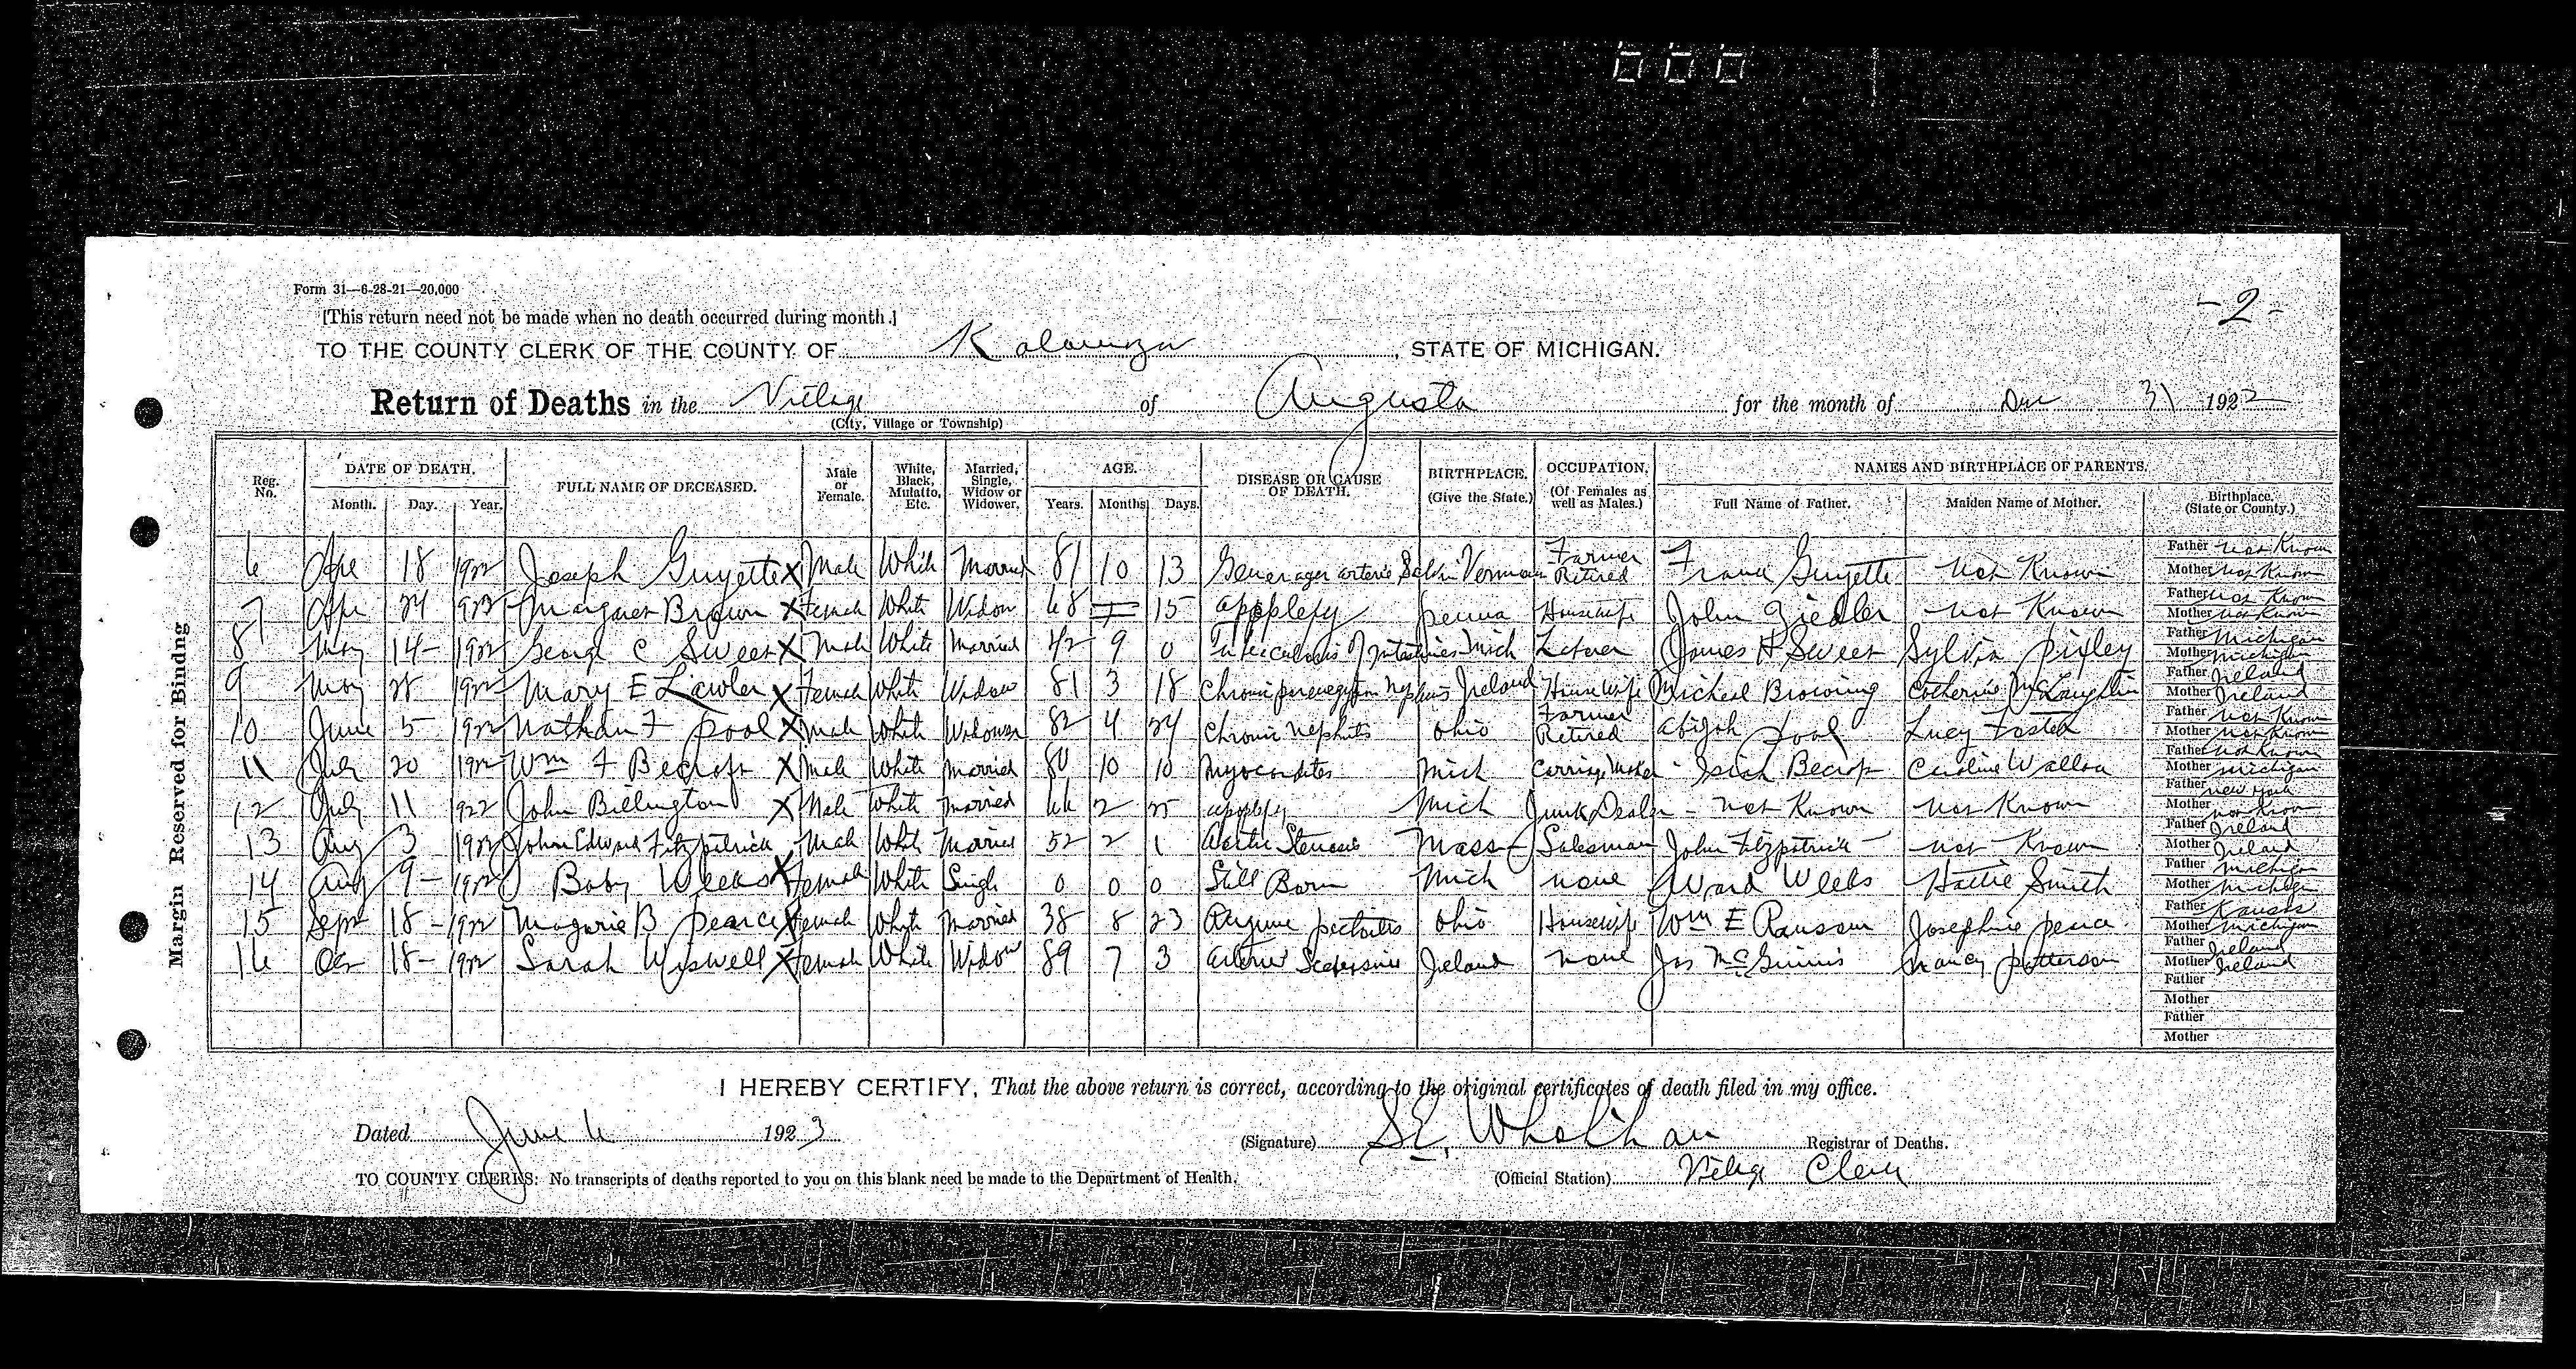 - 2 -
Form 31—6-28-21—20,000
[This return need not be made when no death occurred during month.]
TO THE COUNTY CLERK OF THE COUNTY OF Kalamazoo, STATE OF MICHIGAN.
Return of Deaths in the Village of Augusta for the month of Dec 31 1922
(City, Village or Township)
Margin Reserved for Bindng
Reg. No. DATE OF DEATH. Month. Day. Year. FULL NAME OF DECEASED. Male or Female. White, Black, Mulatto, Etc. Married, Single, Widow or Widower. AGE. Years. Months Days. DISEASE OR CAUSE OF DEATH. BIRTHPLACE. (Give the State.) OCCUPATION. (Of Females as well as Males.) NAMES AND BIRTHPLACE OF PARENTS. Full Name of Father. Maiden Name of Mother. Birthplace. (State or County.)
6 Apr 18 1922 Joseph Guyette X Male White Married 81 10 13 Vermon Farmer Retired Frank Guyette Not Known Father Not Known Mother Not Known
7 Apr 24 1922 Margaret Brown X Female White Widow 68 15 applexy penna Housewife John Ziedler Not Known Father Not Known Mother Not Known
8 May 14 - 1922 George C Sweet X Male White Married 42 9 0 Tuberculosis of Intestines Mich Laborer James H Sweet Sylvia pixley Father Michigan Mother Michigan
9 May 28 1922 Mary E Lawler X Female White Widow 81 3 18 Chronic Ireland Housewife Micheal Browing Catherine McLaughlin Father Ireland Mother Ireland
10 June 5 1922 Nathan F pool X Male White Widower 82 4 24 Chronic Nephritis Ohio Farmer Retired abijah pool Lucy Foster Father Not Known Mother Not Known
11 July 20 1922 Wm F Becroft X Male White Married 80 10 10 Myocarditis Mich Carriage Maker Caroline Father Not Known Mother Michigan
12 July 11 1922 John Billington X Male White Married 66 2 25 applexy Mich Junk Dealer - Not Known Not Known Father New York Mother Not Known
13 Aug 3 1922 John Edward Fitzpatrick Male White Married 52 2 1 Aortic Stenosis Mass - Salesman John Fitzpatrick Not Known Father Ireland Mother Ireland
14 Aug 9 - 1922 Baby Weeks X Female White Single 0 0 0 Still Born Mich none Award Weeks Hattie Smith Father Michigan Mother Michigan
15 Sept 18 - 1922 Magorie B pearce X Female White Married 38 8 23 Angine pectoris Ohio Housewife Wm E Ransom Josephine pearce Father Kansas Mother Michigan
16 Oct 18 - 1922 Sarah Wiswell X Female White Widow 89 7 3 Ireland none Jas McGinnis Nancy patterson Father Ireland Mother Ireland
Father
Mother
Father
Mother
I HEREBY CERTIFY, That the above return is correct, according to the original certificates of death filed in my office.
Dated June 6 1923 (Signature) S E. Whalihan Registrar of Deaths.
TO COUNTY CLERKS: No transcripts of deaths reported to you on this blank need be made to the Department of Health. (Official Station) Village Clerk